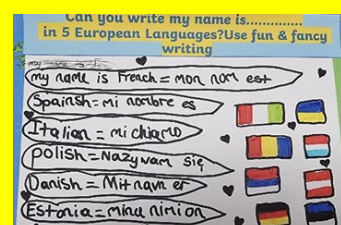 Can you write my name is..............
in 5 European Languages?Use fun & fancy
writing
my name is French = mon nom est
Spainsh = mi nombre es
Italian = mi chiamo
polish = Nazywam się
Danish = Mit navn er
Estonia = minu nimi on